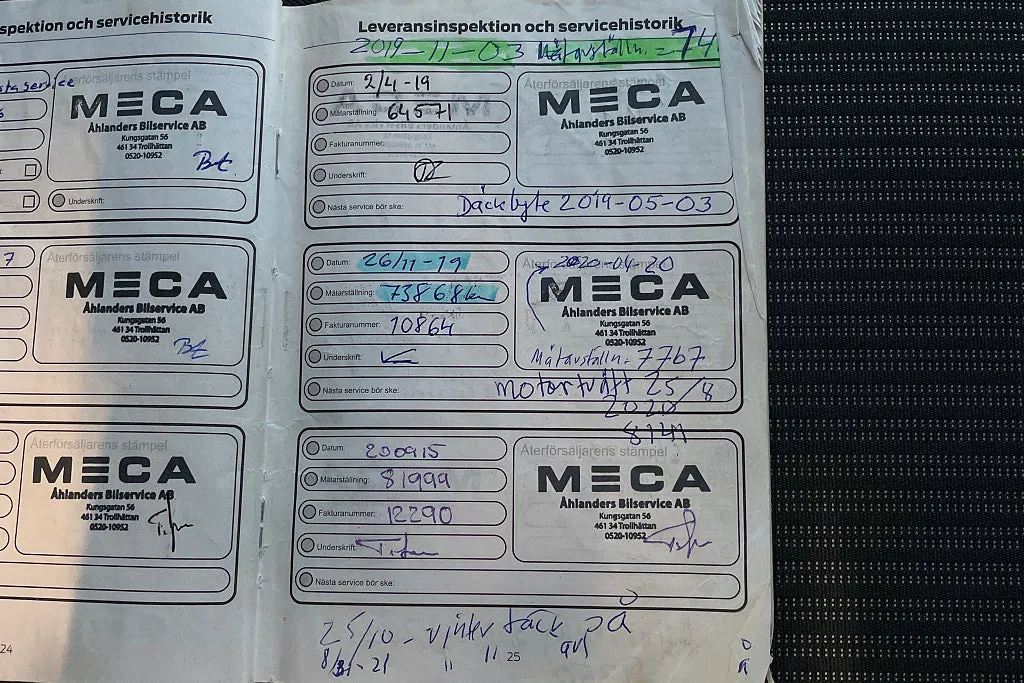 spektion och servicehistorik
sta service
Återförsäljarens stämpel
MECA
Åhlanders Bilservice AB
Kungsgatan 56
461 34 Trollhättan
0520-10952
Bt
Underskrift:
7
Återförsäljarens stämpel
MECA
Åhlanders Bilservice AB
Kungsgatan 56
461 34 Trollhättan
0520-10952
Bt
Återförsäljarens stämpel
MECA
Åhlanders Bilservice AB
Kungsgatan 56
461 34 Trollhättan
0520-10952
24
Leveransinspektion och servicehistorik
2019-11-03 Mätarställn. = 74
Datum: 2/4-19
Mätarställning: 64571
Fakturanummer:
Underskrift:
Nästa service bör ske: Däckbyte 2019-05-03
Återförsäljarens stämpel
MECA
Åhlanders Bilservice AB
Kungsgatan 56
461 34 Trollhättan
0520-10952
Datum: 26/11-19
Mätarställning: 73868 km
Fakturanummer: 10864
Underskrift:
Nästa service bör ske: motortvätt 25/8
2020
8141
Återförsäljarens stämpel
2020-04-20
MECA
Åhlanders Bilservice AB
Kungsgatan 56
461 34 Trollhättan
0520-10952
Mätarställn. 7767
Datum: 200915
Mätarställning: 81999
Fakturanummer: 12290
Underskrift:
Nästa service bör ske:
Återförsäljarens stämpel
MECA
Åhlanders Bilservice AB
Kungsgatan 56
461 34 Trollhättan
0520-10952
25/10 - vinterdäck på
-21 " " av
25